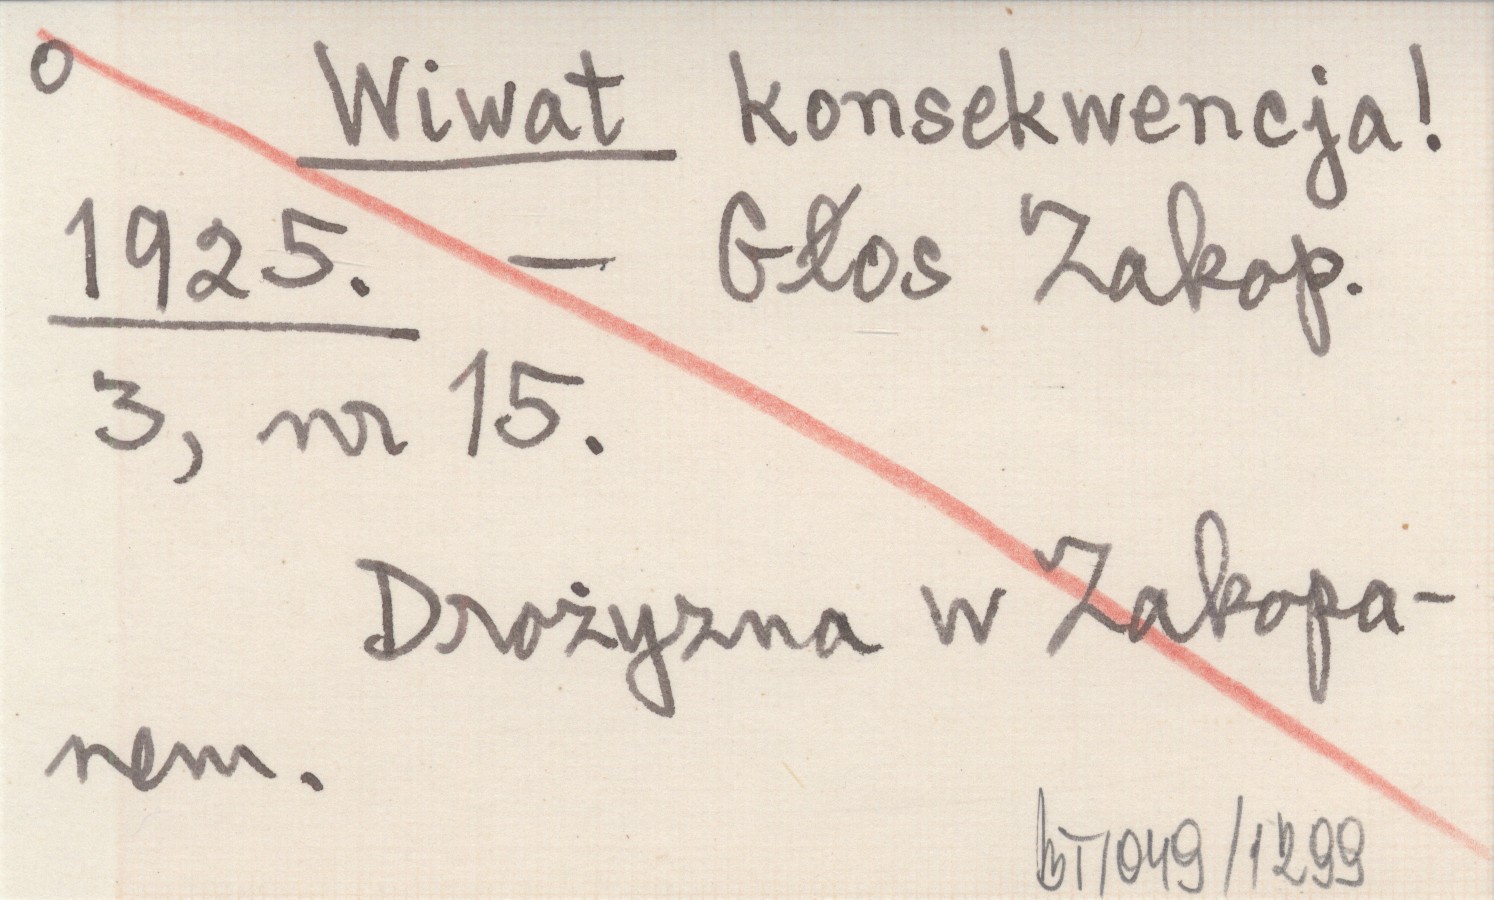 o Wiwat konsekwencja!
1925. — Głos Zakop.
3, nr 15.
Drożyzna w Zakopa-
nem.
bT/049/1299